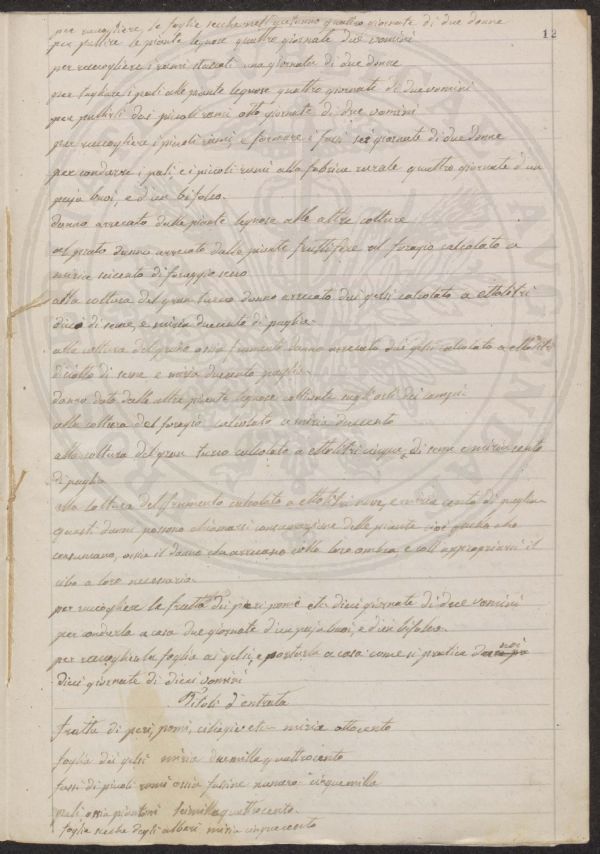 12
per raccogliere, le foglie secche nell'autunno quattro giornate di due donne
per pulire le piante legnose quattro giornate due uomini
per raccogliere i rami staccati una giornata di due donne
per tagliare i pali alle piante legnose quattro giornate di due uomini
per pulirli dai piccoli rami otto giornate di due uomini
per raccogliere i piccoli rami, e formare i fasci sei giornate di due donne
per condurre i pali, e i piccoli rami alla fabrica rurale quattro giornate d'un
pajo buoi, e d'un bifolco.
danno arrecato dalle piante legnose alle altre colture
al prato danno arrecato dalle piante fruttifere al foragio calcolato a
miria seicento di foraggio secco
alla coltura del gran turco danno arrecato dai gelsi calcolato a ettolitri
dieci di seme, e miria duecento di paglia.
alla coltura del grano ossia frumento danno arrecato dai gelsi calcolato a ettolitri
diciotto di seme e miria duecento paglia.
danno dato dalle altre piante legnose coltivate sugli orli dei campi.
alla coltura del foragio calcolato a miria duecento
alla coltura del gran turco calcolato a ettolitri cinque, di seme e miria cento
di paglia
alla coltura del frumento calcolato a ettolitri nove, e miria cento di paglia.
questi danni possono chiamarsi consumazione delle piante cioè quella che
consumano, ossia il danno che arrecano colla loro ombra, e coll'appropriarsi il
cibo a loro necessario.
per raccogliere le frutta dei peri pomi etc dieci giornate di due uomini
per condurla a casa due giornate d'un pajo buoi, e d'un bifolco.
per raccogliere la foglia ai gelsi, e portarla a casa come si pratica da noi
dieci giornate di dieci uomini
Titoli d'entrata
frutta di peri, pomi, ciliegie etc miria ottocento
foglia dei gelsi miria duemilla quattrocento
fassi di piccoli rami ossia fassine numero cinquemilla
pali ossia piantoni seimilla quattrocento
foglia secche degli alberi miria cinquecento